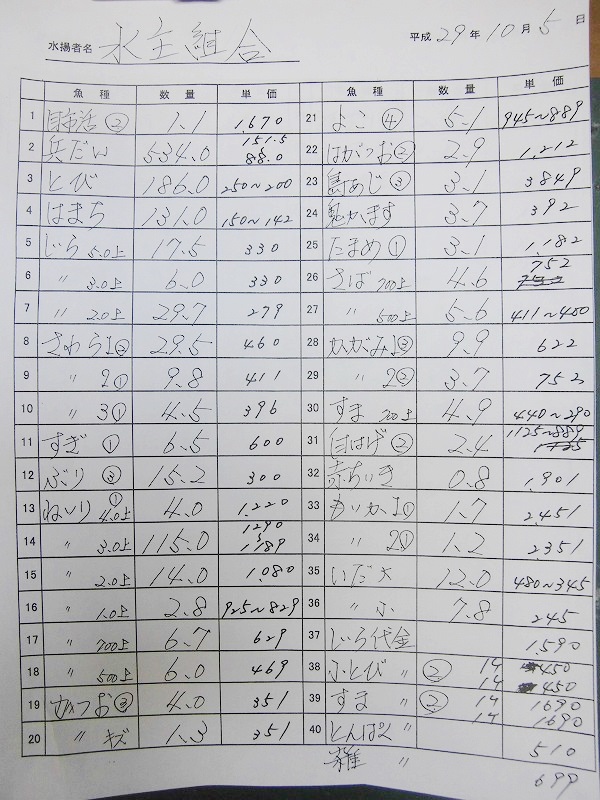 平成 29年 10月 5日
水揚者名 水主組合
魚種 数量 単価
1 ② 1.1 1670
2 兵だい 534.0 151.5 〜 88.0
3 とび 186.0 250〜200
4 はまち 131.0 150〜142
5 しいら 5.0上 17.5 330
6 〃 3.0上 6.0 330
7 〃 2.0上 29.7 279
8 さわら1③ 29.5 460
9 〃 2① 9.8 411
10 〃 3① 4.5 396
11 すぎ ① 6.5 600
12 ぶり ③ 15.2 300
13 ねいり ① 4.0上 4.0 1,220
14 〃 3.0上 115.0 1290 〜 1189
15 〃 2.0上 14.0 1,080
16 〃 1.0上 2.8 925〜829
17 〃 700上 6.7 629
18 〃 500上 6.0 469
19 かつお③ 4.0 351
20 〃 キズ 1.3 351
魚種 数量 単価
21 よこ ④ 5.1 945〜889
22 はがつお② 2.9 1,212
23 島あじ ③ 3.1 3849
24 鬼かます 3.7 392
25 たまめ ① 3.1 1,182
26 さば 700上 4.6 752
27 〃 500上 5.6 411〜400
28 かがみ1③ 9.9 622
29 〃 2② 3.7 752
30 すま 700上 4.9 440〜290
31 白はげ ② 2.4 1125〜889
32 赤ちいき 0.8 1,901
33 もいか1① 1.7 2,451
34 〃 2① 1.2 2,351
35 いだ 大 12.0 480〜345
36 〃 小 7.8 245
37 しいら代金 1,590
38 小とび 〃 ② 14 450
14 450
39 すま 〃 ② 14 1690
14 1690
40 とんぱく 〃 510
雑 〃 699